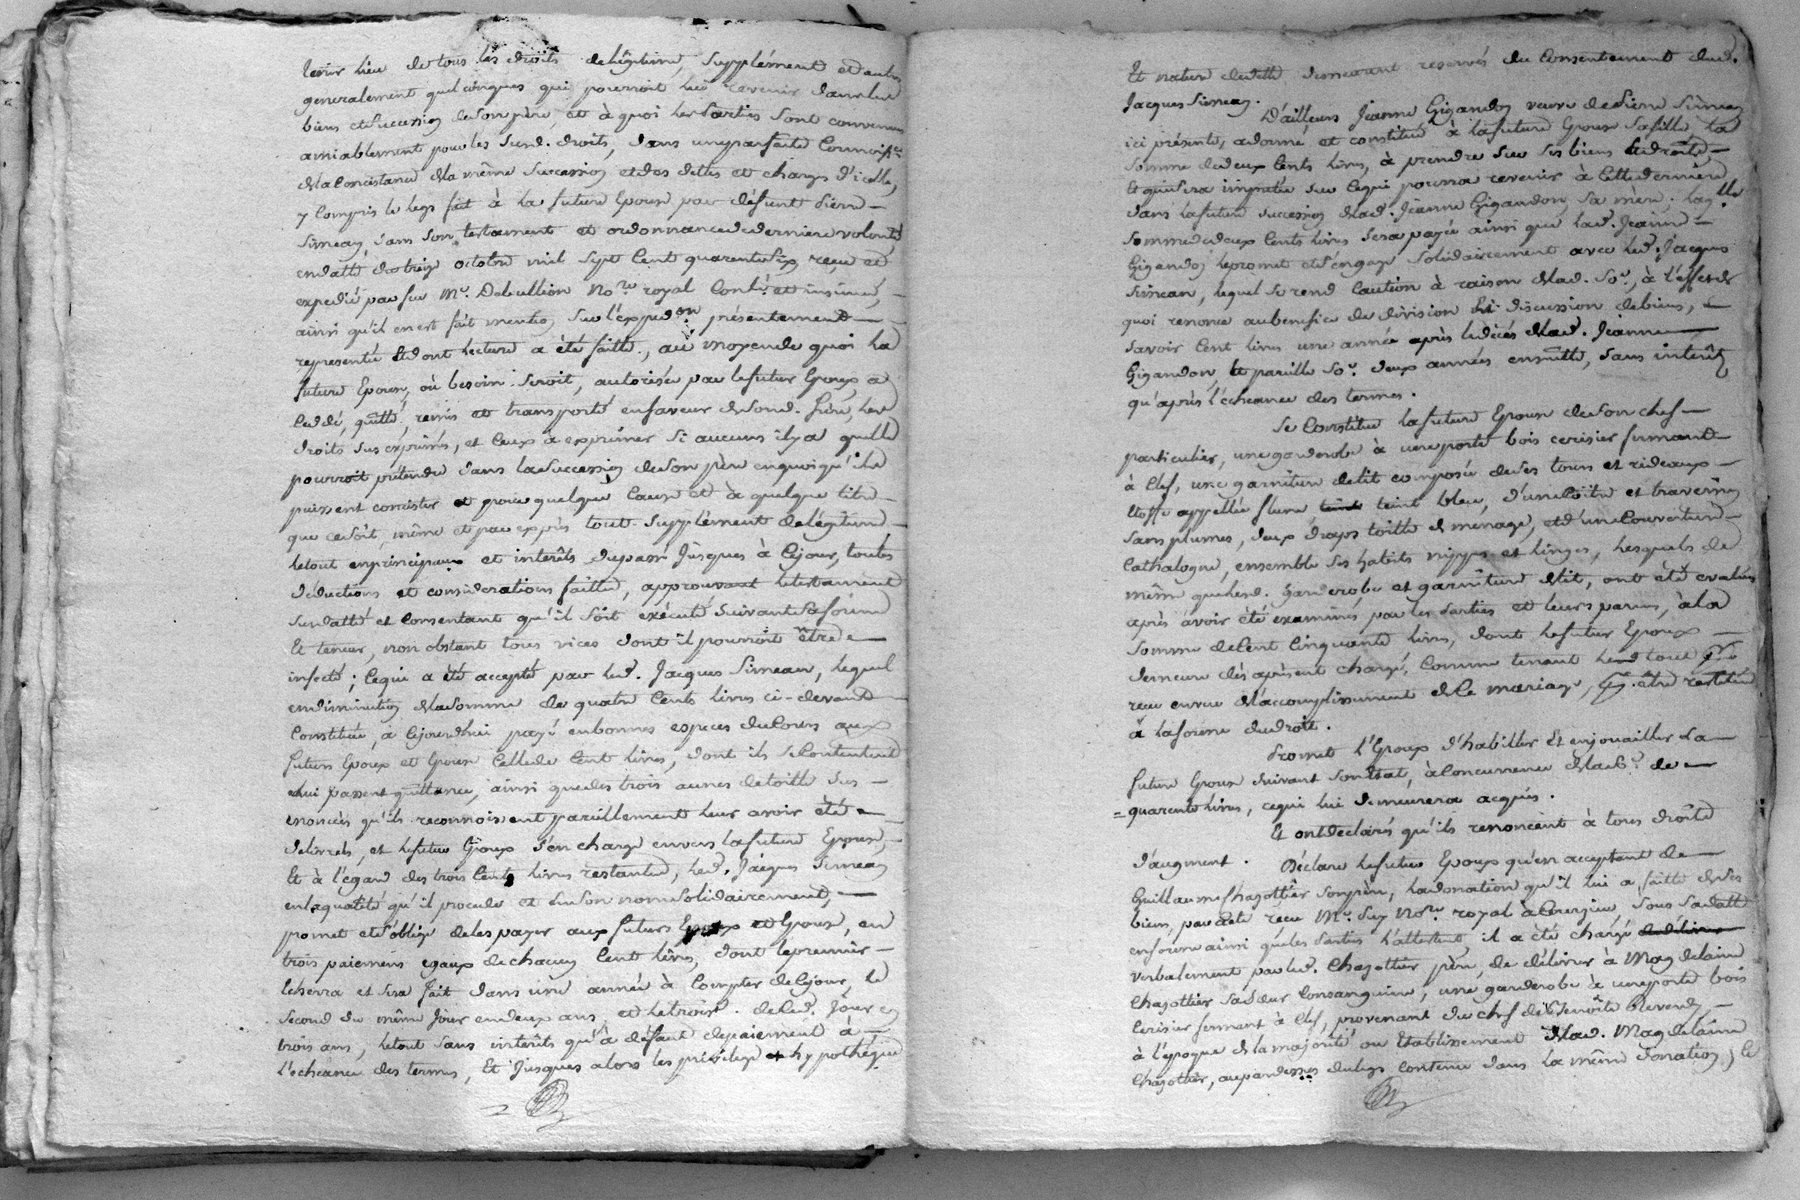 tenir lieu de tous les droits de légitime, supplément et autres
generalement quelconques qui pourroit lui revenir dans les
biens et succession de son père, et à quoi les parties sont convenues
amiablement pour les susd. droits, dans une parfaite Connoisce
de la Concistance de la même succession et des dettes et charges d'icelle,
y Compris le legs fait à la future Epouse par défunt Pierre
Simean, dans son testament et ordonnance de derniere volonté
en datte du treize octobre mil sept cent quarante six reçu et
expedié par feu Me. Debullion Nore royal Contlé. et insinué,
ainsi qu'il en est fait mention sur l'expedon présentement
representée et dont lecture a été faitte, au moyen de quoi la
future Epouse, où besoin seroit, autorisée par le futur Epoux, a
Cedé, quitté, remis et transporté en faveur de sond. frère, les
droits sus exprimés, et ceux à exprimer si aucuns il y a quelle
pourroit prétendre dans la succession de son père en quoi qu'ils
puissent concister et pour quelque cause et à quelque titre
que ce soit, même et par exprès tout supplément de légitime
le tout en principaux et interêts du passé jusques à ce jour, toutes
déductions et considerations faittes, approuvant le testament
susdatté et consentant qu'il soit exécuté suivant sa forme
et teneur, non obstant tous vices dont il pourroit être
infecté; ce qui a été accepté par led. Jacques Simean, lequel
en diminution de la somme de quatre cents livres ci-devant
Constituée, a cejourd'hui payé en bonnes especes du cours aux
futurs Epoux et Epouse celle de cent livres, dont ils se contentent
et lui passent quittance, ainsi que des trois aunes de toille sus
enoncés qu'ils reconnoissent pareillement leur avoir été
delivrés, et le futur Epoux s'en charge envers la future Epouse,
Et à l'égard des trois cents livres restantes, led. Jacques Simean
en la qualité qu'il procede et en son nom solidairement,
promet et s'oblige de les payer aux futurs Epoux et Epouse, en
trois paiemens egaux de chacun cent livres, dont le premier
echerra et sera fait dans une année à compter de ce jour, le
second du même jour en deux ans, et le troise. de ced. jour en
trois ans, le tout sans interêts qu'à défaut de paiement à
l'echeance des termes, Et jusques alors les privilege et hypothéque
Et nature de dette demeurant reservés du Consentement dud.
Jacques Simean.
D'ailleurs Jeanne Gigandon veuve de Pierre Simean
ici présente, a donné et constitué à la future Epouse sa fille la
somme de deux cents livres, à prendre sur ses biens et droits
Et qui sera imputée sur ce qui pourra revenir à cette derniere
dans la future succession de lad. Jeanne Gigandon, sa mère; laqlle
somme de deux cents livres sera payée ainsi que lad. Jeanne
Gigandon le promet et s'engage solidairement avec led. Jacques
Simean, lequel se rend caution à raison de lad. So., à l'effet de
quoi renonce au benefice de division et discussion de biens,
savoir cent livres une année après le décès de lad. Jeanne
Gigandon, et pareille so. deux années ensuitte, sans interêts
qu'après l'echeance des termes.
Se Constitue la future Epouse de son chef
particulier, une garderobe à une porte bois cerisier fermant
à clef, une garniture de lit composée de ses tours et rideaux
étoffe appellée flure teint bleu, d'une coitre et traversin
sans plumes, deux draps toille de menage, et d'une couverture
Cathalogne, ensemble ses habits nippes et linges, lesquels de
même que lesd. garderobe et garniture de lit, ont été evalués
après avoir été examinés par les parties et leurs parens, à la
somme de cent cinquante livres, dont le futur Epoux
demeure dès à présent chargé, comme tenant le tout pr.
reçu en vue de l'accomplissement de ce mariage, pr. être restitué
à la forme du droit.
Promet l'Epoux d'habiller et enjouailler la
future Epouse suivant son état, à Concurrence de la so. de
quarente livres, ce qui lui demeurera acquis.
Et ont declarés qu'ils renoncent à tous droits
d'augment. Déclare le futur Epoux qu'en acceptant de
Guillaume Chazottier son père, la donation qu'il lui a faitte de ses
biens, par acte reçu Me. Nore. royal sous sa datte
en forme ainsi que les parties l'attestent, il a été chargé
verbalement par led. Chazottier père, de délivrer à Magdelaine
Chazottier sa sœur consanguine, une garderobe à une porte bois
cerisier fermant à clef, provenant du chef de Benoîte
à l'époque de la majorité ou établissement de lad. Magdelaine
Chazottier, au par dessus du legs contenu dans la même donation; le